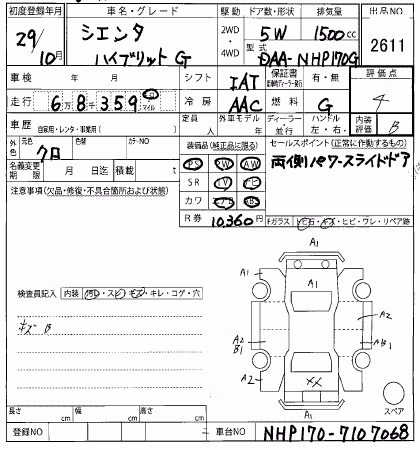 初度登録年月 車名・グレード 駆動 ドア数・形状 排気量 出品NO
29/10月 シエンタ ハイブリット G 2WD・4WD 5W 1500cc 2611
型式 DAA-NHP170G
車検 年 月 シフト IAT 保証書 有・無 評価点
走行 6万8千359 マイル 冷房 AAC 燃料 G 4
車歴 自家用・レンタ・事業用( ) 定員 人 外車モデル 年 ディーラー・並行 ハンドル 左・右 内装評価 B
外色 元色 クロ 色替 カラーNO 装備品(純正品に限る) セールスポイント(正常に作動するもの)
PS PW AW 両側パワースライドドア
名義変更期限 月 日迄 積載 t SR TV ナビ
注意事項(欠品・修復・不具合箇所および状態) カワ エアB ABS
R券 10,360円 Fガラス トビ石・キズ・ヒビ・ワレ・リペア跡
A1
A1 A1
検査員記入 内装 汚レ・スレ・キズ・キレ・コゲ・穴
キズ B
A2
A2 B1 AB1
A2 XX
A1
スペア
長さ cm 幅 cm 高さ cm
登録NO 車台NO NHP170-7107068